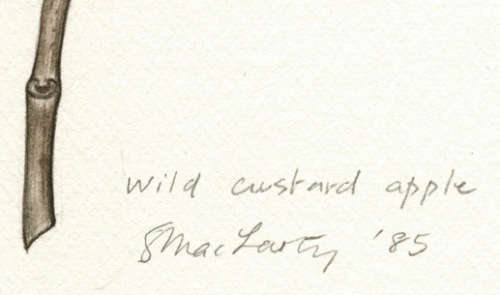 wild custard apple
SMacLarty '85